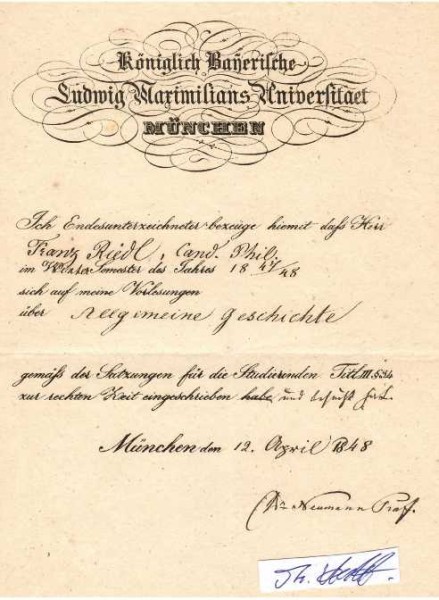 Königlich Bayerische
Ludwig Maximilians Universitaet
MÜNCHEN
Ich Endesunterzeichneter bezeuge hiemit dass Herr
Franz Riedl, Cand. Phil.
im Winter Semester des Jahres 18 47/48
sich auf meine Vorlesungen
über Allgemeine Geschichte
gemäß der Satzungen für die Studierenden Titl. III. §. 34
zur rechten Zeit eingeschrieben habe und besucht hat.
München den 12. April 1848
Dr. Neumann Prof.